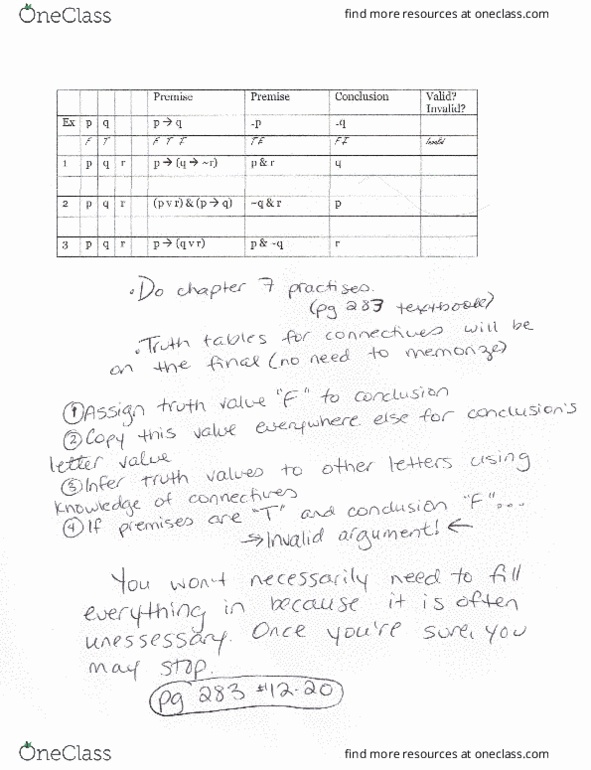 OneClass
find more resources at oneclass.com
Premise Premise Conclusion Valid? Invalid?
Ex p q p → q -p -q
F T F T F T F F T Invalid
1 p q r p → (q → ~r) p & r q
2 p q r (p v r) & (p → q) ~q & r p
3 p q r p → (q v r) p & -q r
• Do chapter 7 practises.
(pg 283 textbook)
• Truth tables for connectives will be
on the final (no need to memorize)
① Assign truth value "F" to conclusion
② Copy this value everywhere else for conclusion's
letter value
③ Infer truth values to other letters using
knowledge of connectives
④ If premises are "T" and conclusion "F"...
→ Invalid argument! ←
You won't necessarily need to fill
everything in because it is often
unessessary. Once you're sure, you
may stop.
pg 283 #12-20
OneClass
find more resources at oneclass.com